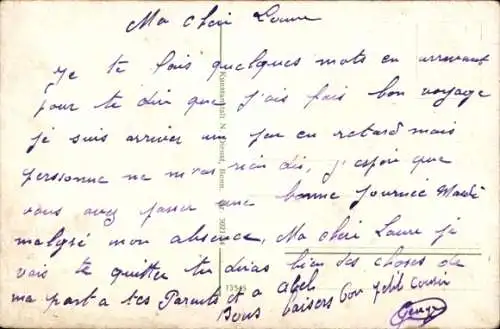 Ma cheri Laure
Je te fais quelques mots en arrivant
pour te dire que j'ais fais bon voyage
je suis arriver un peu en retard mais
personne ne m'as rien dis, j'espère que
vous avez passer une bonne journée Mardi
malgré mon absence, Ma cheri Laure je
vais te quitter tu diras bien des choses de
ma part a tes Parents et a Abel
Bons baisers ton petit cousin
Kunstanstalt N. Dienst, Bonn.